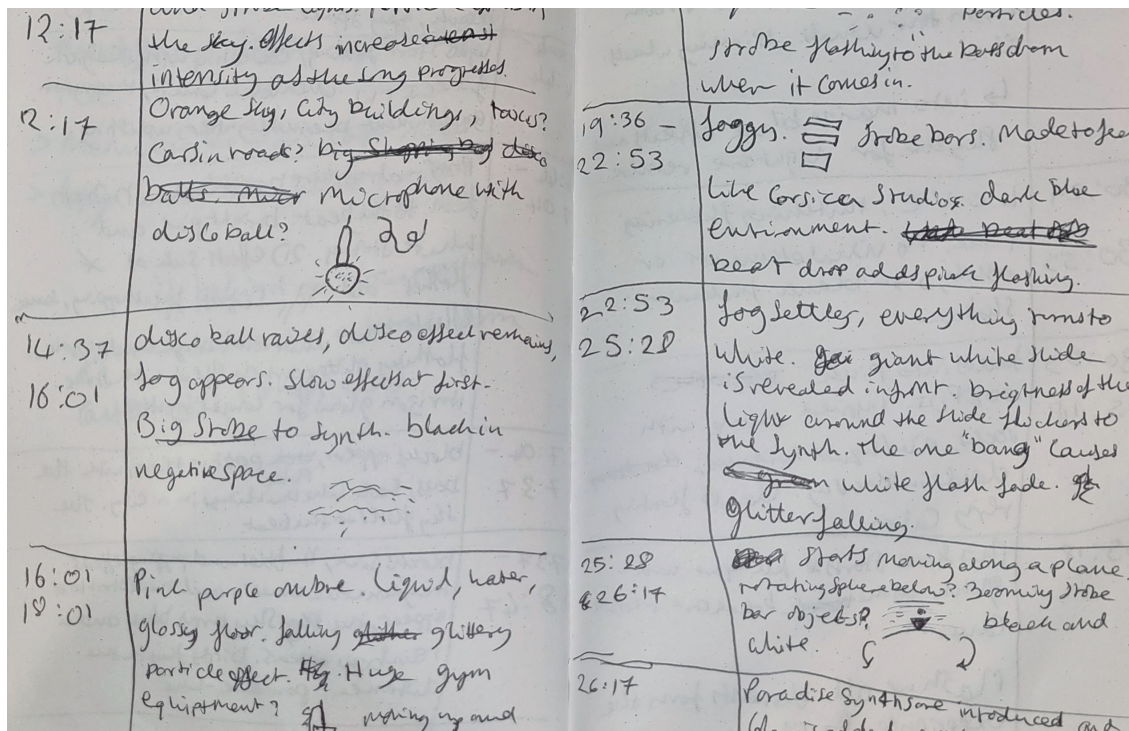 12:17
the sky. Effects increase
intensity as the song progresses.
12:17
Orange sky, City buildings,
Cars in roads? big shopping bag disco
balls, microphone with
disco ball?
14:37
16:01
disco ball raises, disco effect remains,
fog appears. Slow effects at first.
Big Strobe to synth. black in
negative space.
16:01
18:01
Pink purple ombre. Liquid, water,
glossy floor. falling glitter glittery
particle effect. Huge gym
equiptment?
moving up and
Particles.
strobe flashing to "the bass drum
when it comes in.
19:36 -
22:53
foggy. strobe bars. Made to feel
like Corsica Studios. dark blue
environment.
beat drop adds pink flashing.
22:53
25:28
fog settles, everything turns to
white. giant white slide
is revealed infront. brightness of the
light around the slide flickers to
the synth. The one "bang" causes
green white flash fade.
Glitter falling.
25:28
26:17
Starts moving along a plane.
rotating sphere below? Zooming strobe
bar objects? black and
white.
26:17
Paradise synths are introduced and